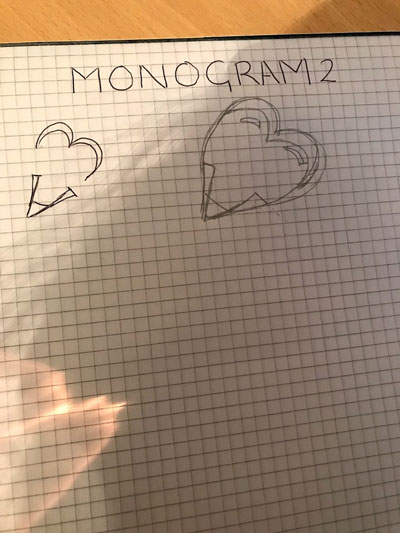 MONOGRAM 2